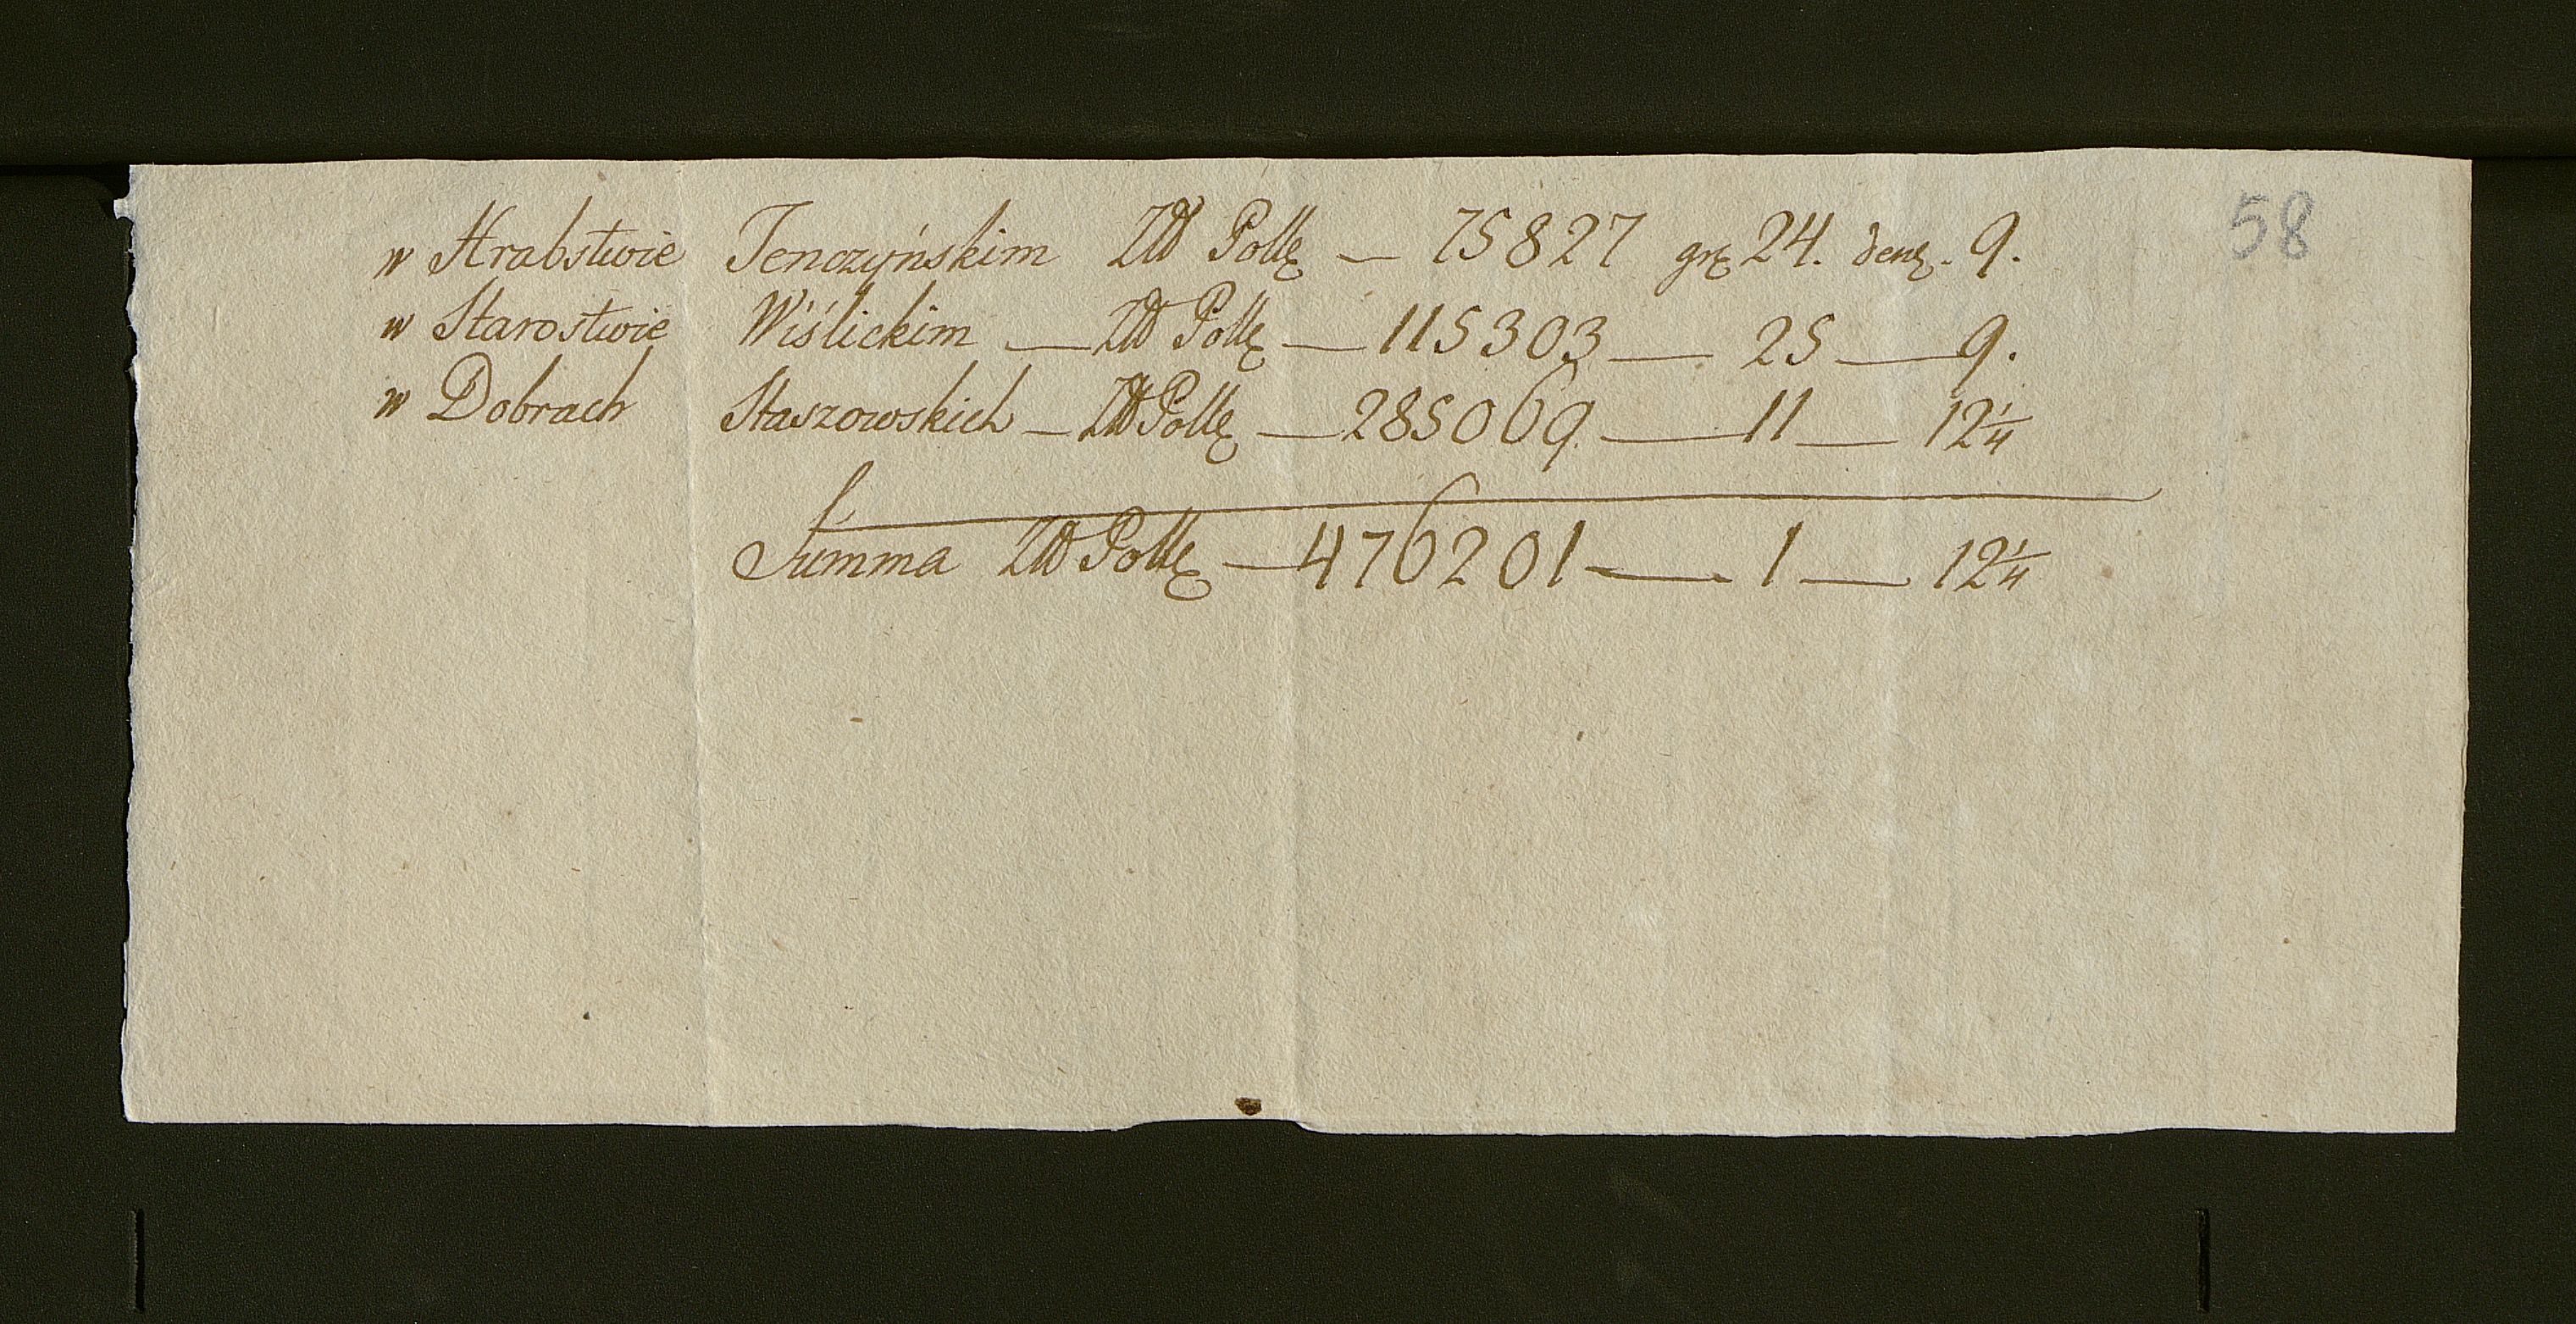 58
w Hrabstwie Tenczyńskim Złł Pollę — 75827 grę 24. denę. 9.
w Starostwie Wiślickim — Złł Pollę — 115303 — 25 — 9.
w Dobrach Staszowskich — Złł Pollę — 285069 — 11 — 12¼
Summa Złł Pollę — 476201 — 1 — 12¼